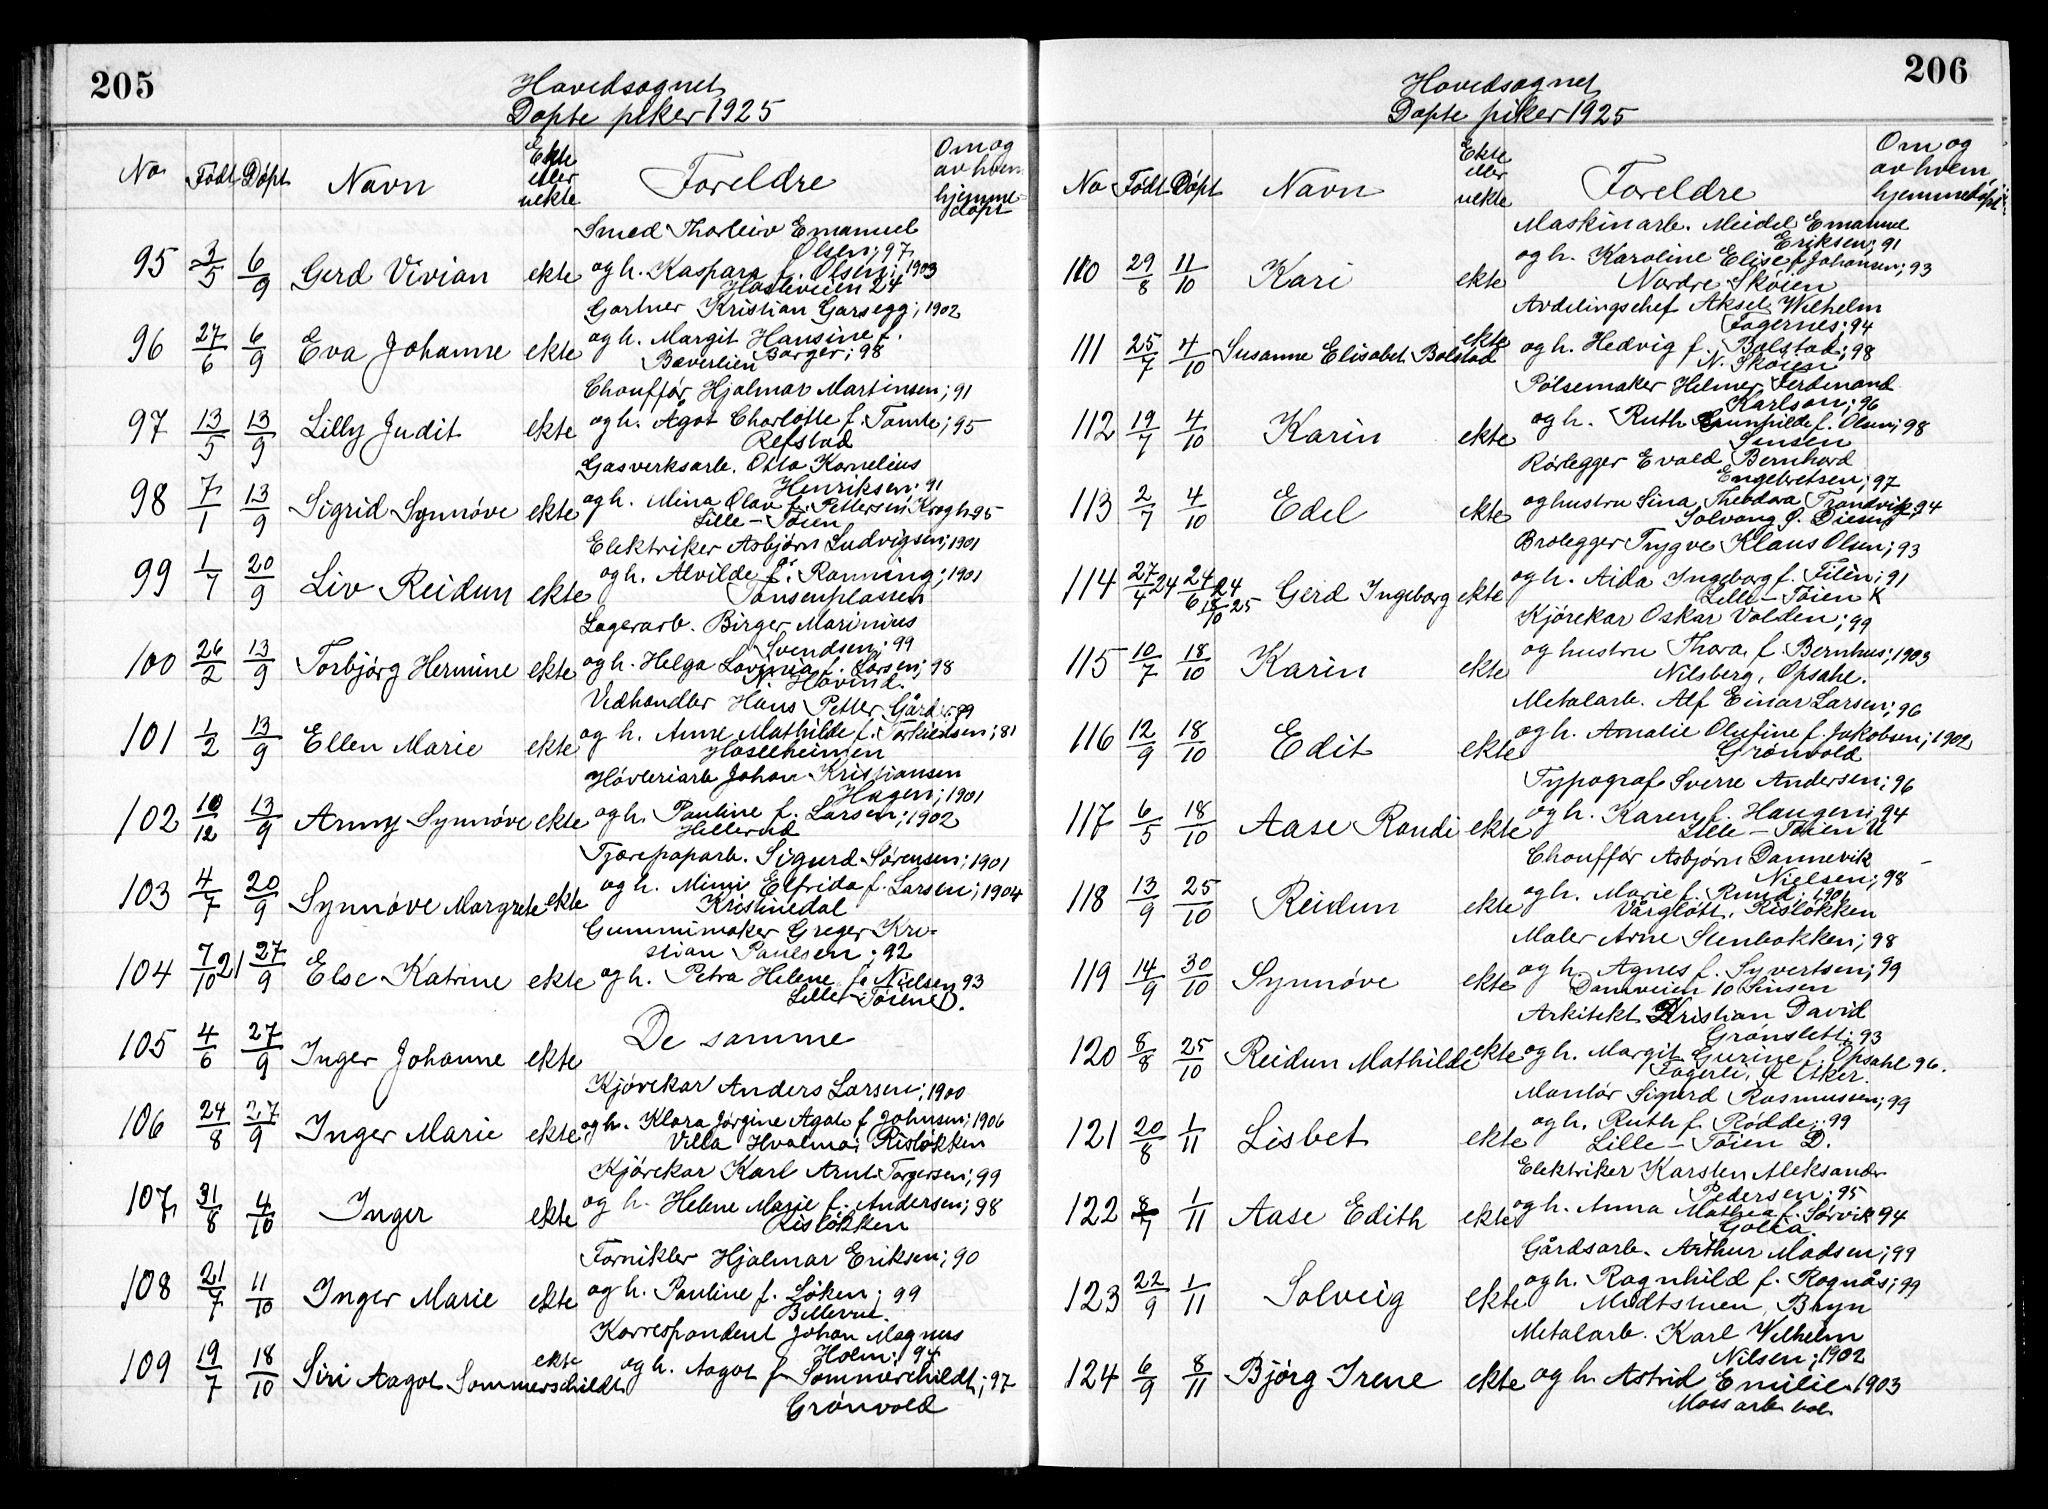 205
Hovedsognet
Døpte piker 1925
No Født Døpt Navn Ekte eller uekte Foreldre Om og av hvem hjemmedøpt
Smed Thorleiv Emanuel
Olsen; 97
95 3/5 6/9 Gerd Vivian ekte og h. Kaspara f. Olsen; 1903
Hasleveien 24
Gartner Kristian Garsegg; 1902
96 27/6 6/9 Eva Johanne ekte og h. Margit Hansine f.
Bæverlien Borger; 98
Chouffør Hjalmar Martinsen; 91
97 13/5 13/9 Lilly Judit ekte og h. Ågot Charlotte f. Tømte; 95
Refstad
Gasverksarb. Otto Kornelius
Henriksen; 91
98 7/1 13/9 Sigrid Synnøve ekte og h. Mina Olav f. Pettersen Krogh 95
Lille-Tøien
Elektriker Asbjørn Ludvigsen; 1901
99 1/7 20/9 Liv Reidun ekte og h. Alvilde f. Rønning; 1901
Tonsenplassen
Lagerarb. Birger Marinius
Svendsen; 99
100 26/2 13/9 Torbjørg Hermine ekte og h. Helga Lovinia f. Larsen; 98
N. Hovind.
Vedhandler Hans Petter Gårder 99
101 1/2 13/9 Ellen Marie ekte og h. Anne Mathilde f. Torkildsen; 81
Hasleheimen
Høvleriarb Johan Kristiansen
Hagen; 1901
102 10/12 13/9 Anny Synnøve ekte og h. Pauline f. Larsen; 1902
Hillerud
Tjærepaparb. Sigurd Sørensen; 1901
103 4/7 20/9 Synnøve Margrete ekte og h. Mimi Elfrida f. Larsen; 1904
Kristinedal
Gummimaker Greger Kri-
stian Paulsen; 92
104 7/10 21 27/9 Else Katrine ekte og h. Petra Helene f. Nielsen 93
Lille Tøien D.
105 4/6 27/9 Inger Johanne ekte De samme
Kjørekar Anders Larsen; 1900
106 24/8 27/9 Inger Marie ekte og h. Klara Jørgine Agate f Johnsen; 1906
Villa Hvalmo, Risløkken
Kjørekar Karl Arnt Torgersen; 99
107 31/8 4/10 Inger ekte og h. Helene Marie f. Andersen; 98
Risløkken
Fornikler Hjalmar Eriksen; 90
108 21/7 11/10 Inger Marie ekte og h. Pauline f. Løken; 99
Billevue.
Korrespondent Johan Magnus
Holm; 94
109 19/7 18/10 Siri Aagot Sommerschildt ekte og h. Aagot f Sommerschildt; 97
Grønvold
206
Hovedsognet
Døpte piker 1925
No Født Døpt Navn Ekte eller uekte Foreldre Om og av hvem hjemmedøpt
Maskinarb. Meidel Emanuel
Eriksen; 91
110 29/8 11/10 Kari ekte og h. Karoline Elise f Johansen; 93
Nordre Skøien
Avdelingschef Aksel Wilhelm
Fagernes; 94
111 25/7 4/10 Susanne Elisabet Bolstad ekte og h. Hedvig f. Bolstad; 98
N. Skøien
Pølsemaker Helmer Ferdinand
Karlson; 96
112 19/7 4/10 Karin ekte og h. Ruth Gunhilde f. Olsen; 98
Sinsen
Rørlegger Evald Bernhard
Engebretsen; 97
113 2/7 4/10 Edel ekte og hustru Sina Theodora Trondvik 94
Solvang Ø. Disen
Brolegger Trygve Klaus Olsen; 93
114 27/4 24 24/6 24 18/10 25 Gerd Ingeborg ekte og h. Aida Ingeborg f. Filén; 91
Lille-Tøien K
Kjørekar Oskar Volden; 99
115 10/7 18/10 Karin ekte og hustru Thora f. Bernhus; 1903
Nilsberg, Opsahl.
Metalarb. Alf Einar Larsen; 96
116 12/9 18/10 Edit ekte og h. Amalie Olufine f. Jakobsen; 1902
Grønvold
Typograf Sverre Andersen; 96
117 6/5 18/10 Aase Randi ekte og h. Karen f. Haugen; 94
Lille-Tøien U
Chouffør Asbjørn Dannevik
Nielsen; 98
118 13/9 25/10 Reidun ekte og h. Marie f. Rund; 1901
Vårgløtt, Risløkken
Maler Arne Stenbakken; 98
119 14/9 30/10 Synnøve ekte og h. Agnes f. Syvertsen; 99
Damveien 10 Sinsen
Arkitekt Kristian David
Grønslett; 93
120 8/8 25/10 Reidun Mathilde ekte og h. Margit Gurine f. Opsahl 96.
Fagerli, Ø. Aker.
Montør Sigurd Rasmussen; 99
121 20/8 1/11 Lisbet ekte og h. Ruth f. Rødde; 99
Lille-Tøien D.
Elektriker Karsten Aleksander
Pedersen; 95
122 8/7 1/11 Aase Edith ekte og h. Anna Mathea f. Sørvik 94
Golia
Gårdsarb. Arthur Madsen; 99
123 22/9 1/11 Solveig ekte og h. Ragnhild f. Rognås; 99
Midtsmen, Bryn
Metalarb. Karl Wilhelm
Nilsen; 1902
124 6/9 8/11 Bjørg Irene ekte og h. Astrid Emilie 1903